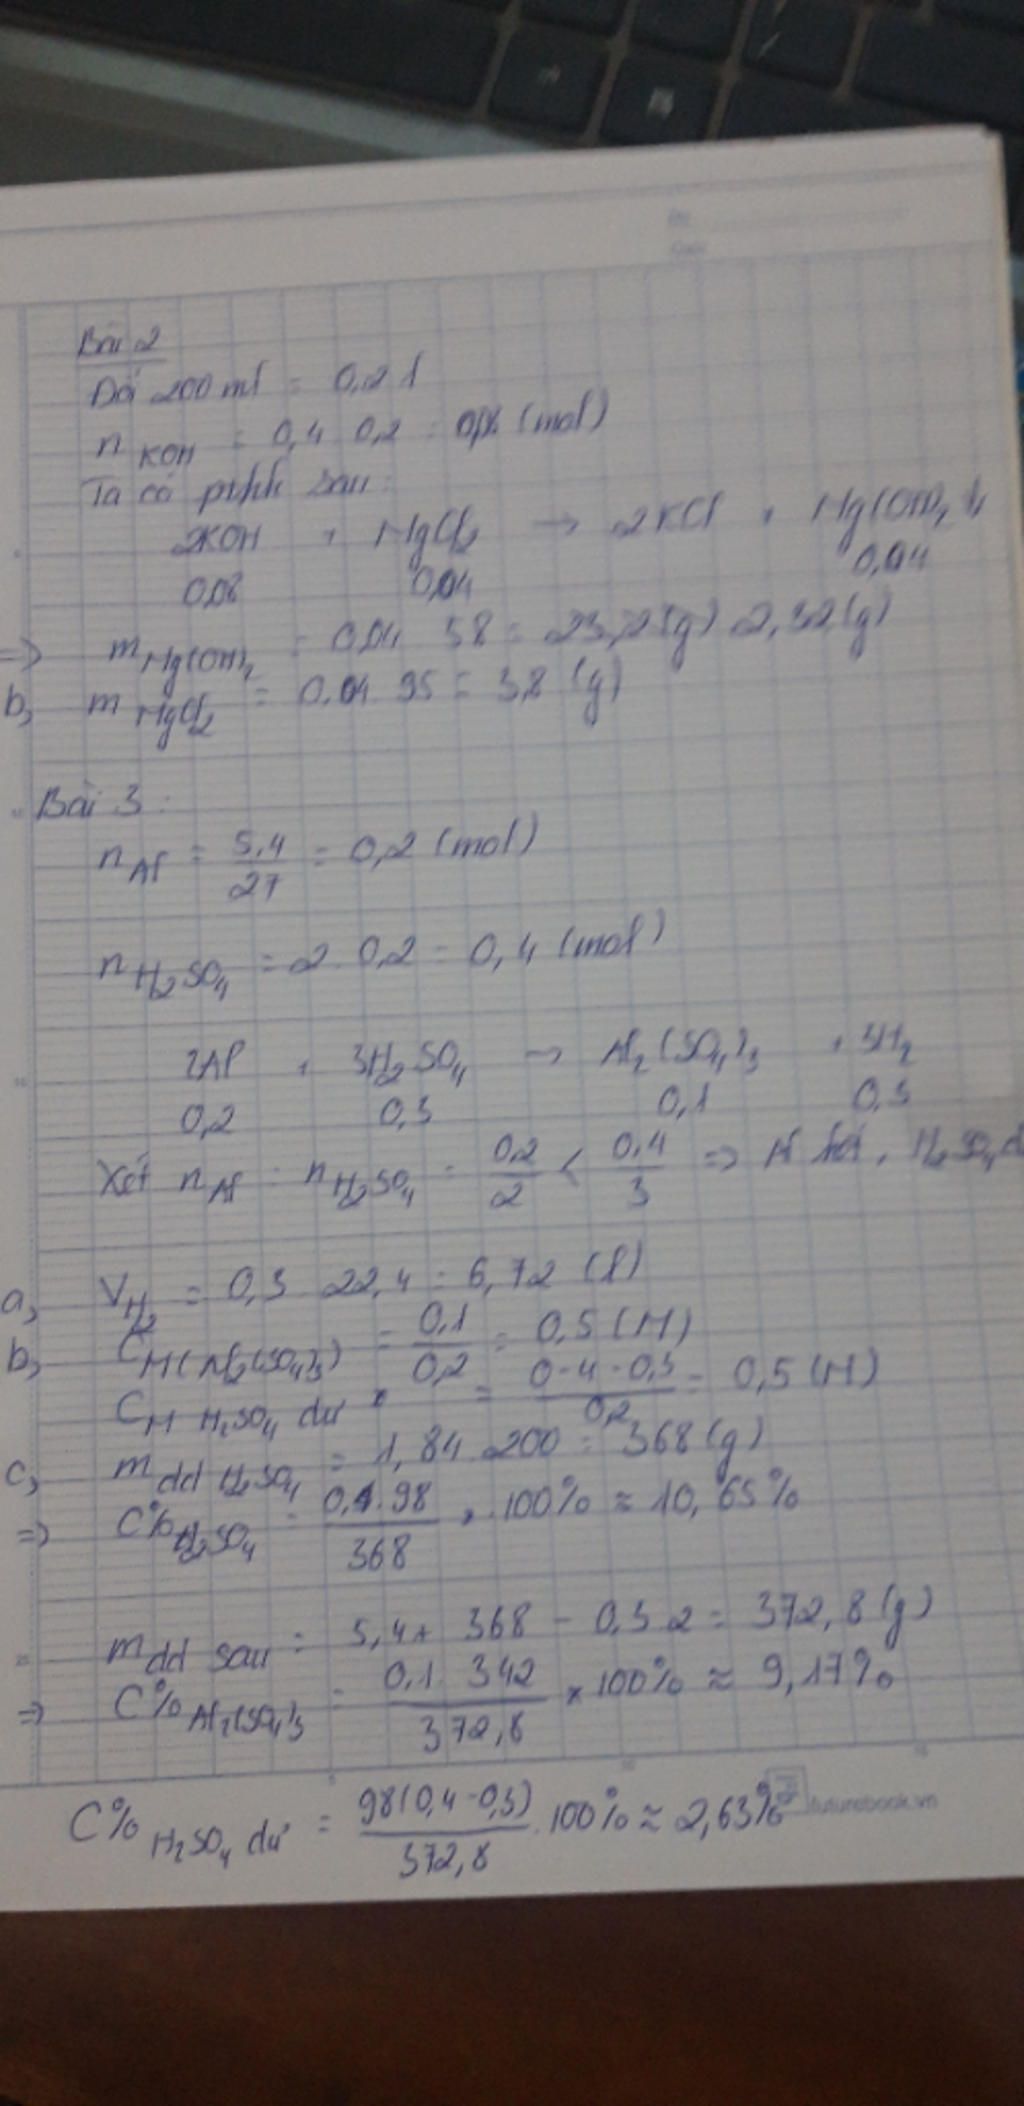 Bài 2
Đổi 200 ml = 0,2 l
n KOH = 0,4 . 0,2 = 0,08 (mol)
Ta có pthh sau:
2KOH + MgCl2 → 2KCl + Mg(OH)2 ↓
0,08 0,04 0,04
=> m Mg(OH)2 = 0,04 . 58 = 2,32 (g)
b, m MgCl2 = 0,04 . 95 = 3,8 (g)
Bài 3 :
n Al = 5,4 / 27 = 0,2 (mol)
n H2SO4 = 2 . 0,2 = 0,4 (mol)
2Al + 3H2SO4 → Al2(SO4)3 + 3H2
0,2 0,3 0,1 0,3
Xét n Al : n H2SO4 = 0,2 / 2 < 0,4 / 3 => Al hết, H2SO4 d
a, V H2 = 0,3 . 22,4 = 6,72 (l)
b, C M(Al2(SO4)3) = 0,1 / 0,2 = 0,5 (M)
C M H2SO4 dư = 0-4 - 0,3 / 0,2 = 0,5 (M)
c, m dd H2SO4 = 1,84 . 200 = 368 (g)
=> C% H2SO4 = 0,4 . 98 / 368 . 100% ≈ 10,65%
m dd sau = 5,4 + 368 - 0,3 . 2 = 372,8 (g)
=> C% Al2(SO4)3 = 0,1 . 342 / 372,8 × 100% ≈ 9,17%
C% H2SO4 dư = 98(0,4-0,3) / 372,8 . 100% ≈ 2,63%
futurebook.vn